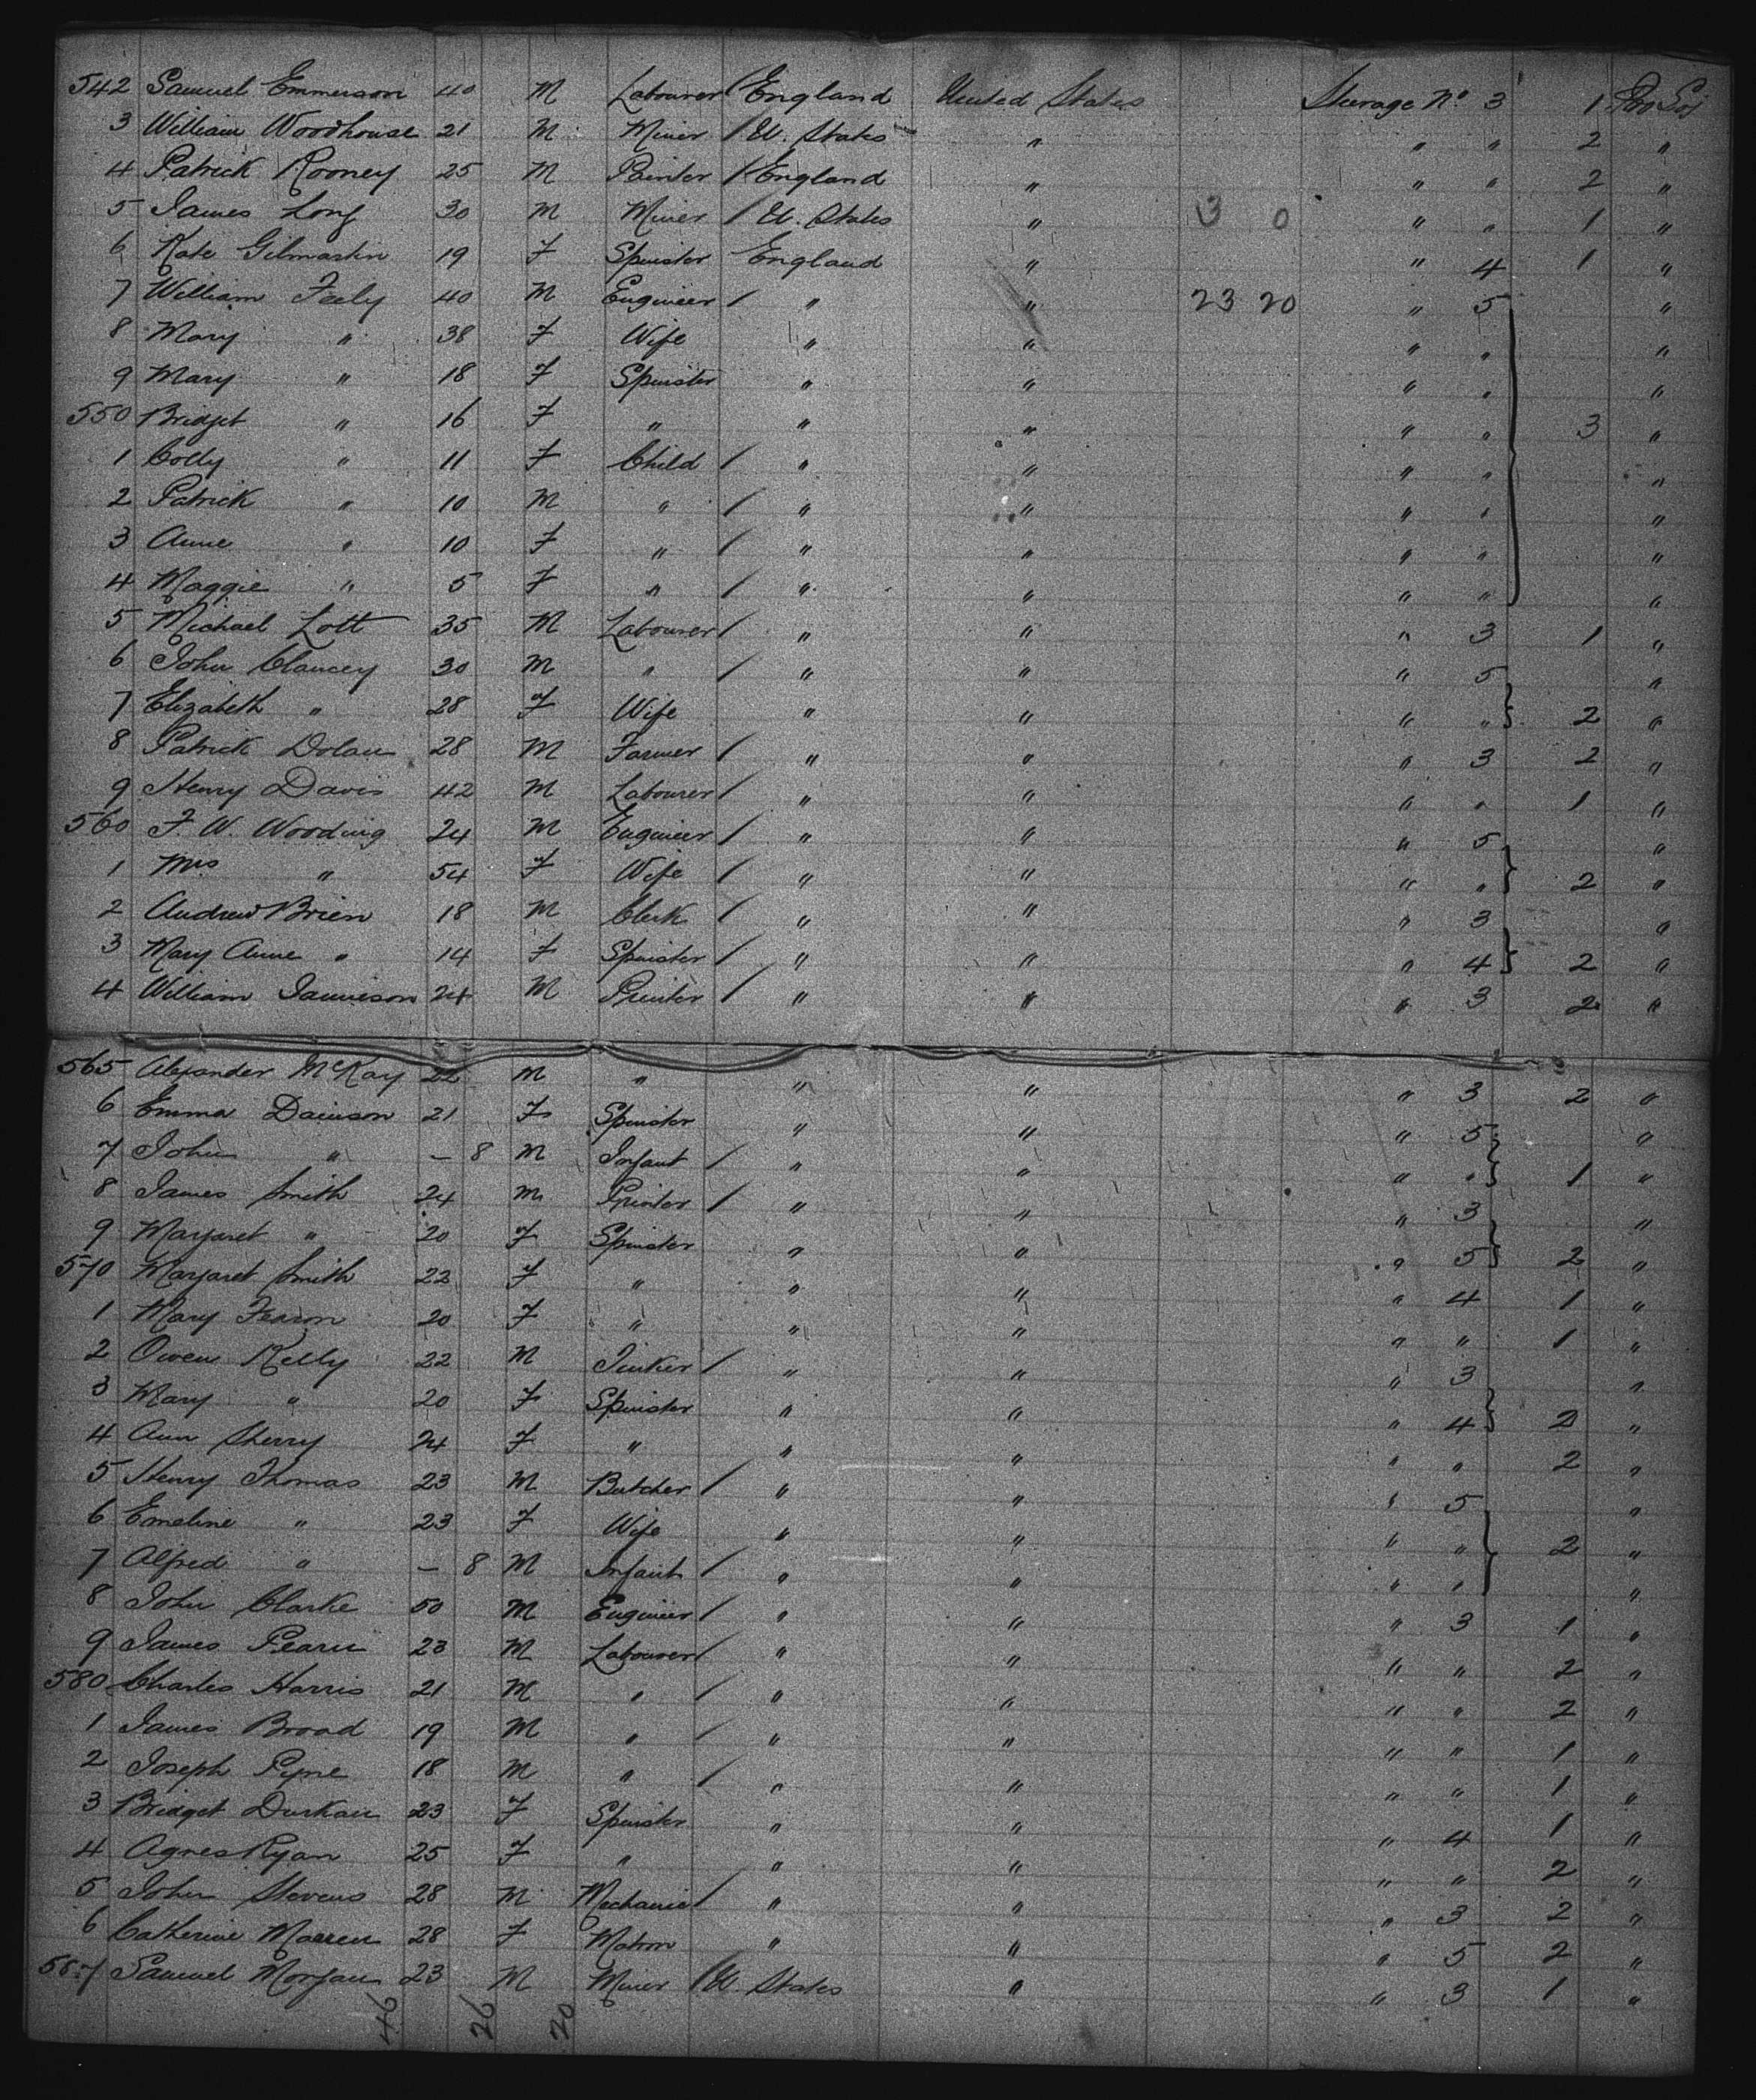 542 Samuel Emmerson 40 M Labourer / England United States Steerage No 3 1 Pro Soj
3 William Woodhouse 21 M Miner / U. States " " " 2 "
4 Patrick Rooney 25 M Painter / England " " " 2 "
5 James Long 30 M Miner / U. States " 3 0 " " 1 "
6 Kate Gilmartin 19 F Spinster England " " 4 1 "
7 William Feely 40 M Engineer / " " 23 20 " 5 "
8 Mary " 38 F Wife " " " " "
9 Mary " 18 F Spinster " " " " "
550 Bridget " 16 F " " " " " 3 "
1 Colly " 11 F Child / " " " " "
2 Patrick " 10 M " / " " " " "
3 Anne " 10 F " / " " " " "
4 Maggie " 5 F " / " " " " "
5 Michael Lott 35 M Labourer / " " " 3 1 "
6 John Clancey 30 M " / " " " 5 "
7 Elizabeth " 28 F Wife " " " " 2 "
8 Patrick Dolan 28 M Farmer / " " " 3 2 "
9 Henry Davis 42 M Labourer / " " " " 1 "
560 F. W. Wooding 24 M Engineer / " " " 5 "
1 Mrs " 54 F Wife / " " " " 2 "
2 Andrew Brien 18 M Clerk / " " " 3 "
3 Mary Anne " 14 F Spinster / " " " 4 2 "
4 William Jamieson 24 M Printer / " " " 3 2 "
565 Alexander McKay 22 M " " " " 3 2 "
6 Emma Dainson 21 F Spinster " " " 5 "
7 John " – 8 M Infant / " " " " 1 "
8 James Smith 24 M Printer / " " " 3 "
9 Margaret " 20 F Spinster " " " 5 2 "
570 Margaret Smith 22 F " " " " 4 1 "
1 Mary Fearon 20 F " " " " " 1 "
2 Owen Kelly 22 M Tinker / " " " 3 "
3 Mary " 20 F Spinster " " " 4 2 "
4 Ann Sherry 24 F " " " " " 2 "
5 Henry Thomas 23 M Butcher / " " " 5 "
6 Emeline " 23 F Wife " " " " 2 "
7 Alfred " – 8 M Infant / " " " " "
8 John Clarke 50 M Engineer / " " " 3 1 "
9 James Pearn 23 M Labourer / " " " " 2 "
580 Charles Harris 21 M " / " " " " 2 "
1 James Broad 19 M " / " " " " 1 "
2 Joseph Pyne 18 M " / " " " " 1 "
3 Bridget Durkan 23 F Spinster " " " 4 1 "
4 Agnes Ryan 25 F " " " " " 2 "
5 John Stevens 28 M Mechanic / " " " 3 2 "
6 Catherine Marren 28 F Matron " " " 5 2 "
587 Samuel Morgan 23 M Miner / U. States " " 3 1 "
46 26 20